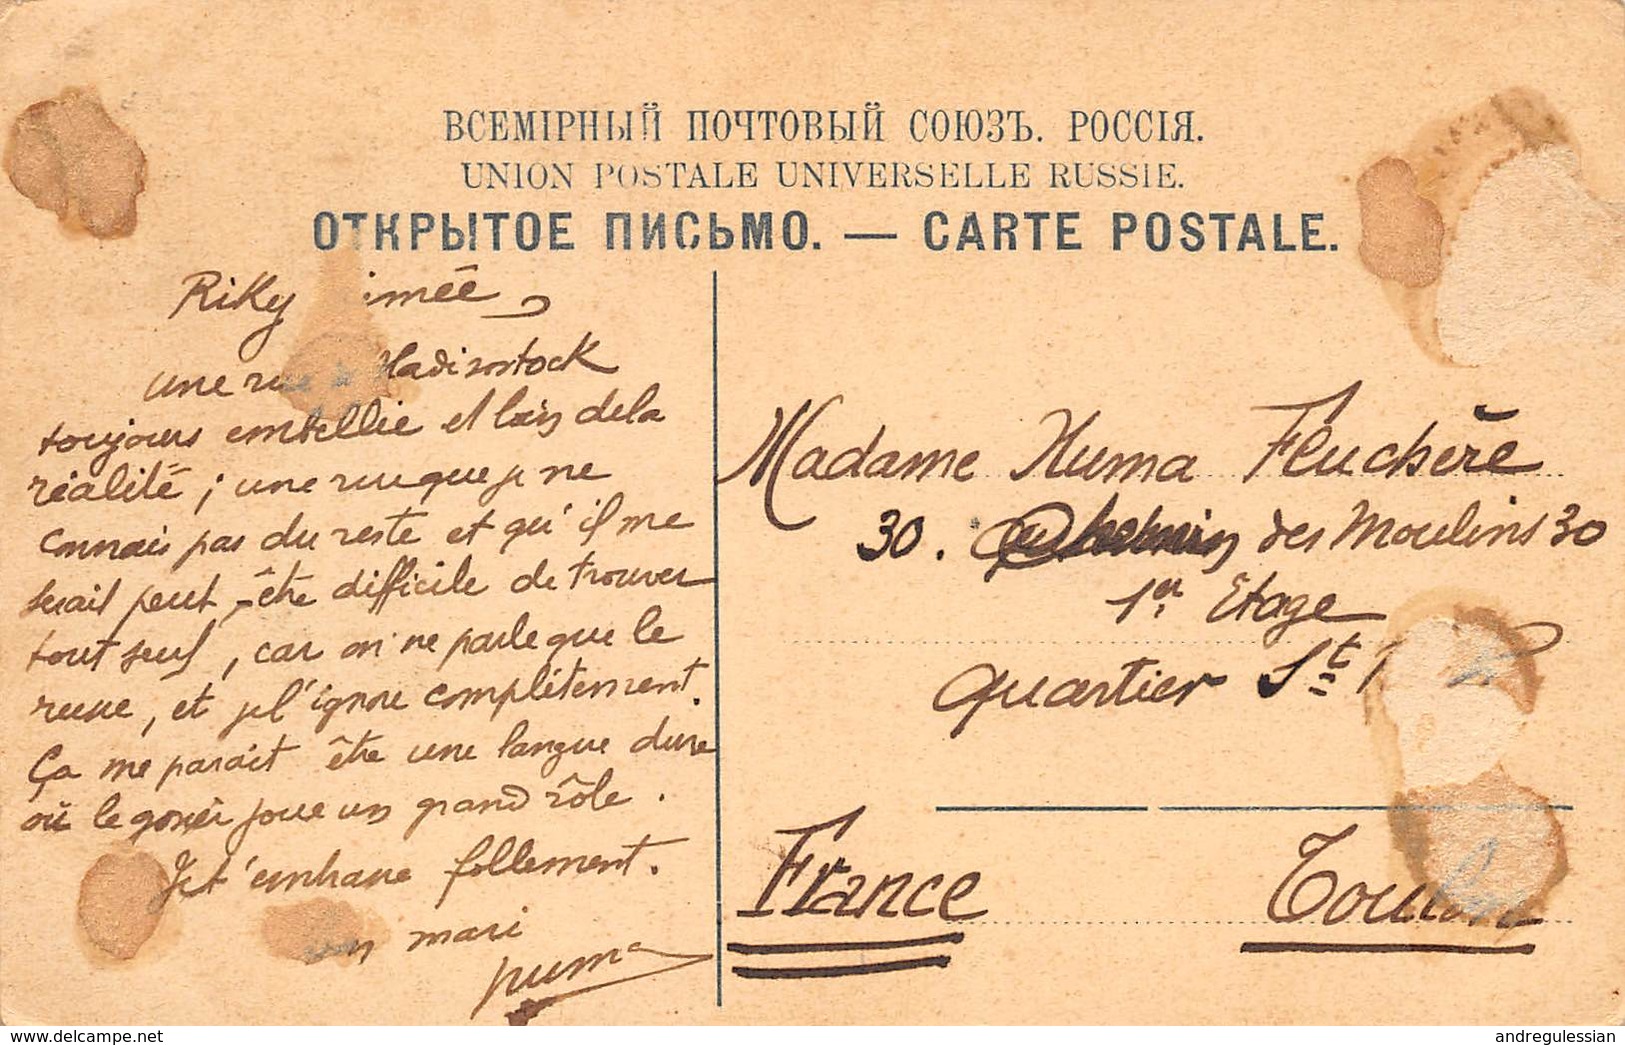 ВСЕМІРНЫЙ ПОЧТОВЫЙ СОЮЗЪ. РОССІЯ.
UNION POSTALE UNIVERSELLE RUSSIE.
ОТКРЫТОЕ ПИСЬМО. — CARTE POSTALE.
Riky aimée,
une rue à Vladivostock
toujours embellie et loin de la
réalité ; une rue que je ne
connais pas du reste et qu'il me
serait peut-être difficile de trouver
tout seul, car on ne parle que le
russe, et je l'ignore complètement.
Ça me parait être une langue dure
où le gosier joue un grand rôle.
Je t'embrasse follement.
ton mari
Numa
Madame Numa Fluchère
30. Chemin des Moulins 30
1er Etage
quartier St
France Toulon
www.delcampe.net
andregulessian